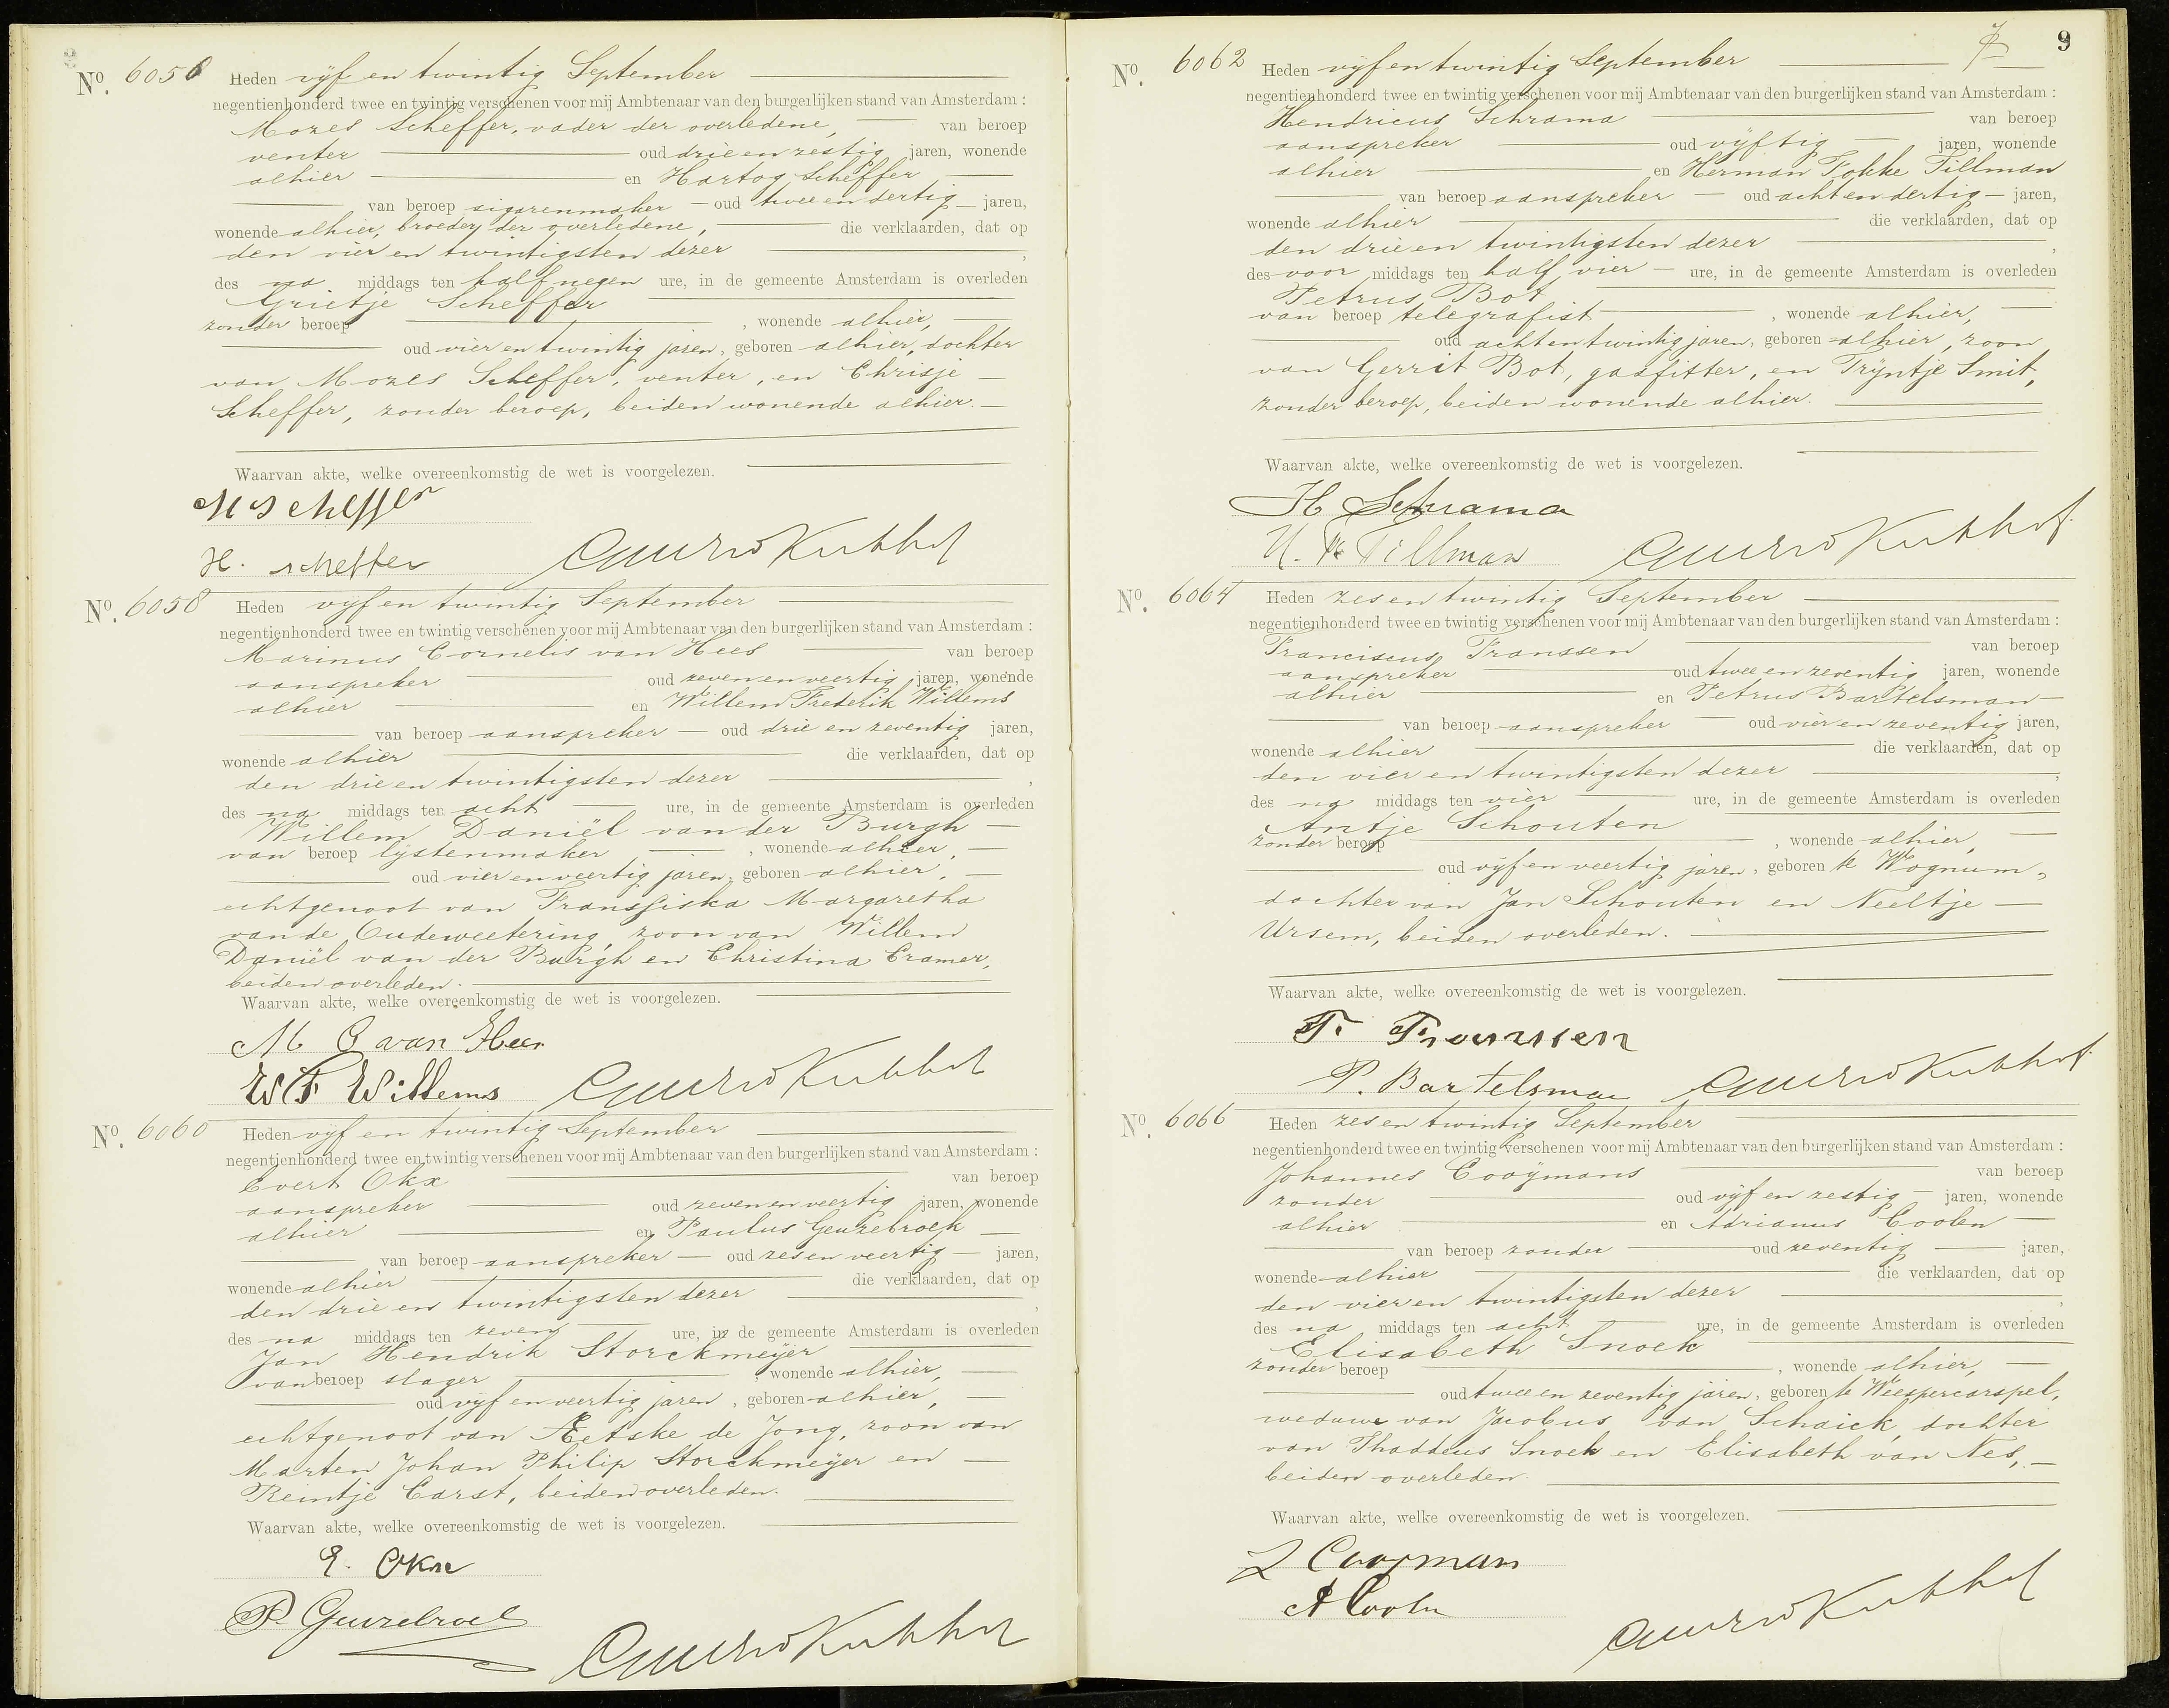 No. 6056 Heden vijf en twintig September
negentienhonderd twee en twintig verschenen voor mij Ambtenaar van den burgerlijken stand van Amsterdam :
Mozes Scheffer, vader der overledene, van beroep
venter oud drie en zestig jaren, wonende
alhier en Hartog Scheffer
van beroep sigarenmaker oud twee en dertig jaren,
wonende alhier, broeder der overledene, die verklaarden, dat op
den vier en twintigsten dezer ,
des na middags ten half negen ure, in de gemeente Amsterdam is overleden
Grietje Scheffer
zonder beroep , wonende alhier,
oud vier en twintig jaren, geboren alhier, dochter
van Mozes Scheffer, venter, en Chrisje
Scheffer, zonder beroep, beiden wonende alhier.
Waarvan akte, welke overeenkomstig de wet is voorgelezen.
M Scheffer
H. Scheffer
No. 6058 Heden vijf en twintig September
negentienhonderd twee en twintig verschenen voor mij Ambtenaar van den burgerlijken stand van Amsterdam :
Marinus Cornelis van Hees van beroep
aanspreker oud zeven en veertig jaren, wonende
alhier en Willem Frederik Willems
van beroep aanspreker oud drie en zeventig jaren,
wonende alhier die verklaarden, dat op
den drie en twintigsten dezer ,
des na middags ten acht ure, in de gemeente Amsterdam is overleden
Willem Daniël van der Burgh
van beroep lijstenmaker , wonende alhier,
oud vier en veertig jaren, geboren alhier,
echtgenoot van Fransfiska Margaretha
van de Oudeweetering, zoon van Willem
Daniël van der Burgh en Christina Cramer,
beiden overleden.
Waarvan akte, welke overeenkomstig de wet is voorgelezen.
M C van Hees
W F Willems
No. 6060 Heden vijf en twintig September
negentienhonderd twee en twintig verschenen voor mij Ambtenaar van den burgerlijken stand van Amsterdam :
Evert Okx van beroep
aanspreker oud zeven en veertig jaren, wonende
alhier en Paulus Geuzebroek
van beroep aanspreker oud zes en veertig jaren,
wonende alhier die verklaarden, dat op
den drie en twintigsten dezer ,
des na middags ten zeven ure, in de gemeente Amsterdam is overleden
Jan Hendrik Storckmeijer
van beroep slager , wonende alhier,
oud vijf en veertig jaren, geboren alhier,
echtgenoot van Aetske de Jong, zoon van
Marten Johan Philip Storckmeijer en
Reintje Carst, beiden overleden.
Waarvan akte, welke overeenkomstig de wet is voorgelezen.
E. Okx
P Geuzebroek
9
No. 6062 Heden vijf en twintig September
negentienhonderd twee en twintig verschenen voor mij Ambtenaar van den burgerlijken stand van Amsterdam :
Hendricus Schrama van beroep
aanspreker oud vijftig jaren, wonende
alhier en Herman Fokke Tillman
van beroep aanspreker oud acht en dertig jaren,
wonende alhier die verklaarden, dat op
den drie en twintigsten dezer ,
des voor middags ten half vier ure, in de gemeente Amsterdam is overleden
Petrus Bot
van beroep telegrafist , wonende alhier,
oud acht en twintig jaren, geboren alhier, zoon
van Gerrit Bot, gasfitter, en Trijntje Smit,
zonder beroep, beiden wonende alhier.
Waarvan akte, welke overeenkomstig de wet is voorgelezen.
H Schrama
H. F. Tillman
No. 6064 Heden zes en twintig September
negentienhonderd twee en twintig verschenen voor mij Ambtenaar van den burgerlijken stand van Amsterdam :
Franciscus Franssen van beroep
aanspreker oud twee en zeventig jaren, wonende
alhier en Petrus Bartelsman
van beroep aanspreker oud vier en zeventig jaren,
wonende alhier die verklaarden, dat op
den vier en twintigsten dezer ,
des na middags ten vier ure, in de gemeente Amsterdam is overleden
Antje Schouten
zonder beroep , wonende alhier,
oud vijf en veertig jaren, geboren te Wognum,
dochter van Jan Schouten en Neeltje
Ursem, beiden overleden.
Waarvan akte, welke overeenkomstig de wet is voorgelezen.
F. Franssen
P. Bartelsman
No. 6066 Heden zes en twintig September
negentienhonderd twee en twintig verschenen voor mij Ambtenaar van den burgerlijken stand van Amsterdam :
Johannes Cooijmans van beroep
zonder oud vijf en zestig jaren, wonende
alhier en Adrianus Coolen
van beroep zonder oud zeventig jaren,
wonende alhier die verklaarden, dat op
den vier en twintigsten dezer ,
des na middags ten acht ure, in de gemeente Amsterdam is overleden
Elisabeth Snoek
zonder beroep , wonende alhier,
oud twee en zeventig jaren, geboren te Weespercarspel,
weduwe van Jacobus van Schaick, dochter
van Thaddeus Snoek en Elisabeth van Nes,
beiden overleden.
Waarvan akte, welke overeenkomstig de wet is voorgelezen.
J Cooijmans
A Coolen